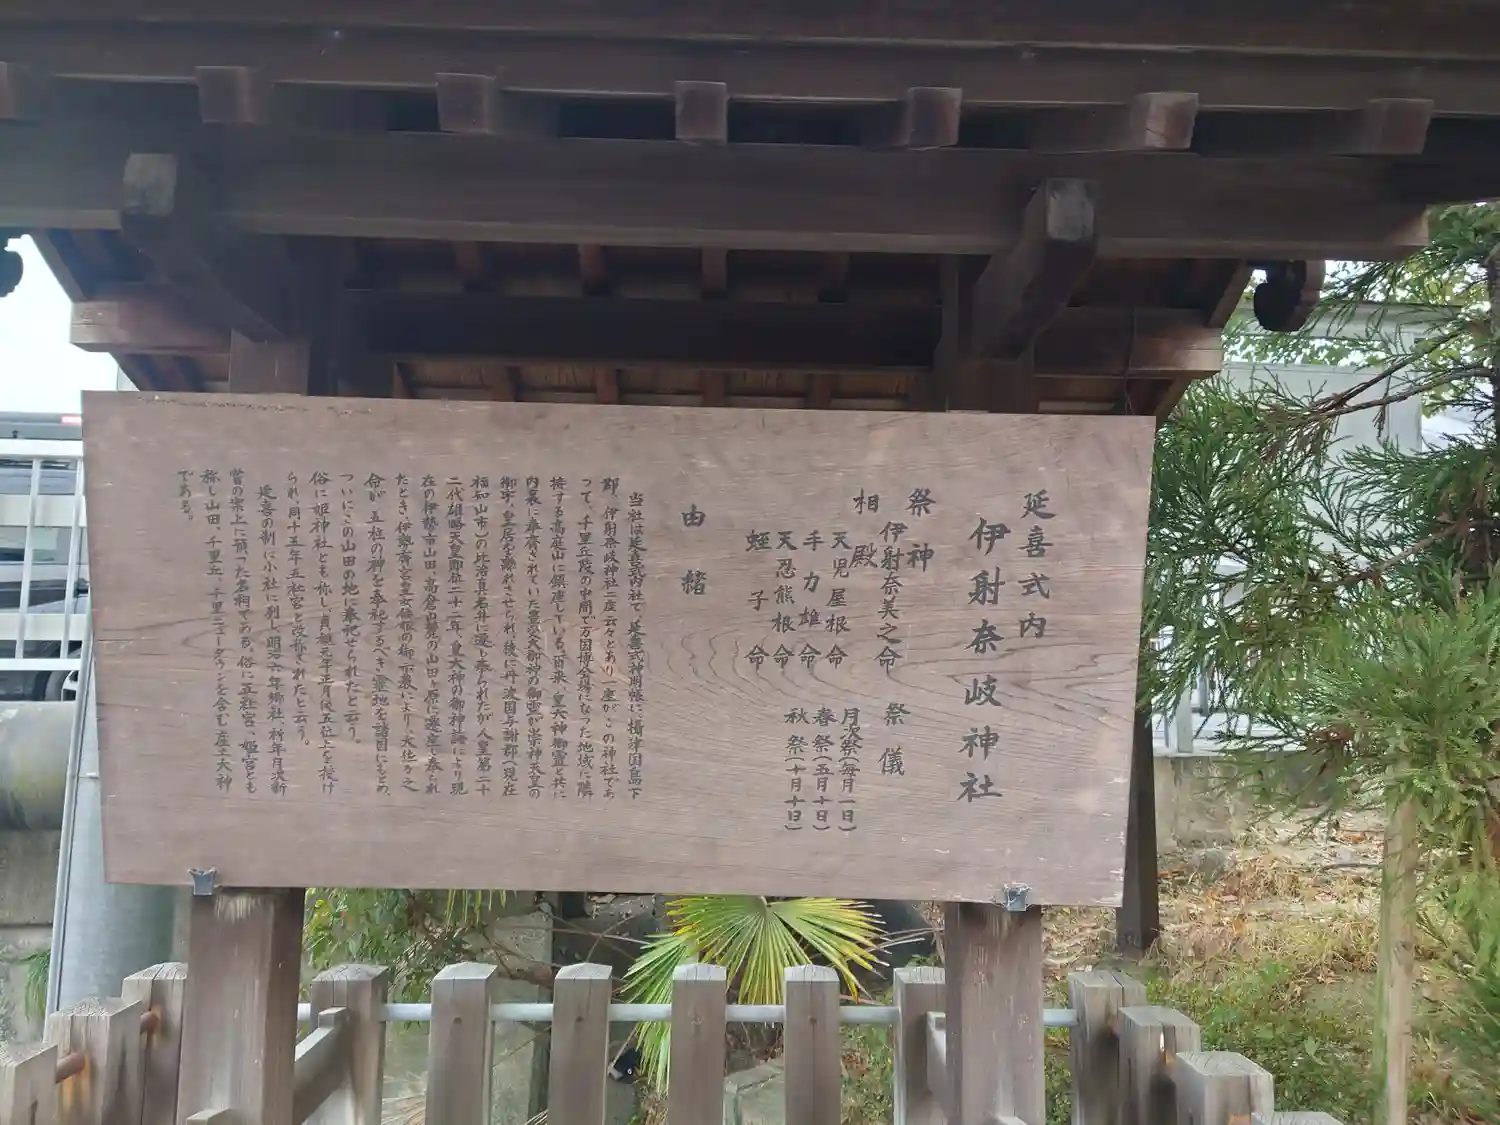 延喜式内
伊射奈岐神社
祭神
伊射奈美之命
相殿
天児屋根命
手力雄命
天忍熊根命
蛭子命
祭儀
月次祭(毎月一日)
春祭(五月十日)
秋祭(十月十日)
由緒
当社は延喜式内社で、延喜式神明帳に、摂津国島下
郡、伊射奈岐神社二座云々とあり一座がこの神社であ
つて、千里丘陵の中間で万国博会場になった地域に隣
接する高庭山に鎮連している。古来、皇大神御霊と共に
内裏に奉斎されていた豊受大御神の御霊が崇神天皇の
御宇、皇居を離れさせられ、後に丹波国与謝郡(現在
福知山市)の比治真名井に還し奉られたが人皇第二十
二代雄略天皇即位二十二年、皇大神の御神誨により現
在の伊勢市山田、高倉山麓の山田ヶ原に遷座し奉られ
たとき、伊勢斎宮皇女倭姫の御示教により、大佐々之
命が、五柱の神を奉祀するべき霊地を諸国にもとめ、
ついにこの山田の地に奉祀せられたと云う。
俗に姫神社とも称し、貞観元年正月従五位上を授け
られ、同十五年五社宮と改称されたと云う。
延喜の制に小社に列し、明治六年郷社、祈年月次新
嘗の案上に預つた名祠である。俗に五社宮、姫宮とも
称し山田、千里丘、千里ニュータウンを含む産土大神
である。